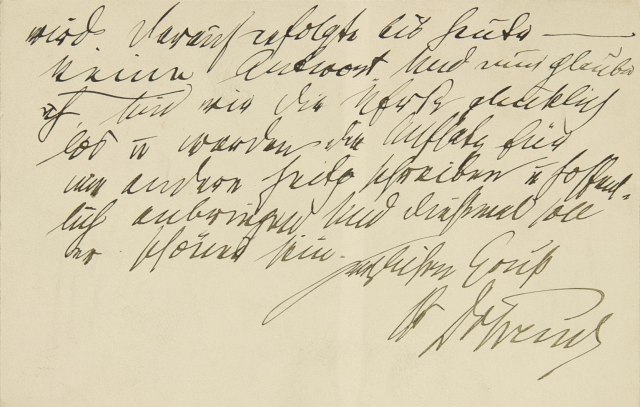 wird. Darauf erfolgte bis heute —
keine Antwort und nun glaube
ich sind wir die glücklich
los u werden den Aufsatz für
eine andere Zeitg schreiben u hoffent-
lich anbringen und diesmal soll
er schöner sein.
herzlichen Gruß